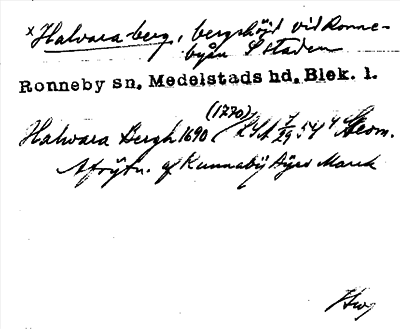 x Halvara berg, bergshöjd vid Ronne-
byån S staden
Ronneby sn, Medelstads hd, Blek. l.
(1770)
Halwara Bergh 1690 LSA 7/29 54 "Geom.
Afrÿtn. af Runnabÿ Åÿrs Marck
Hwg